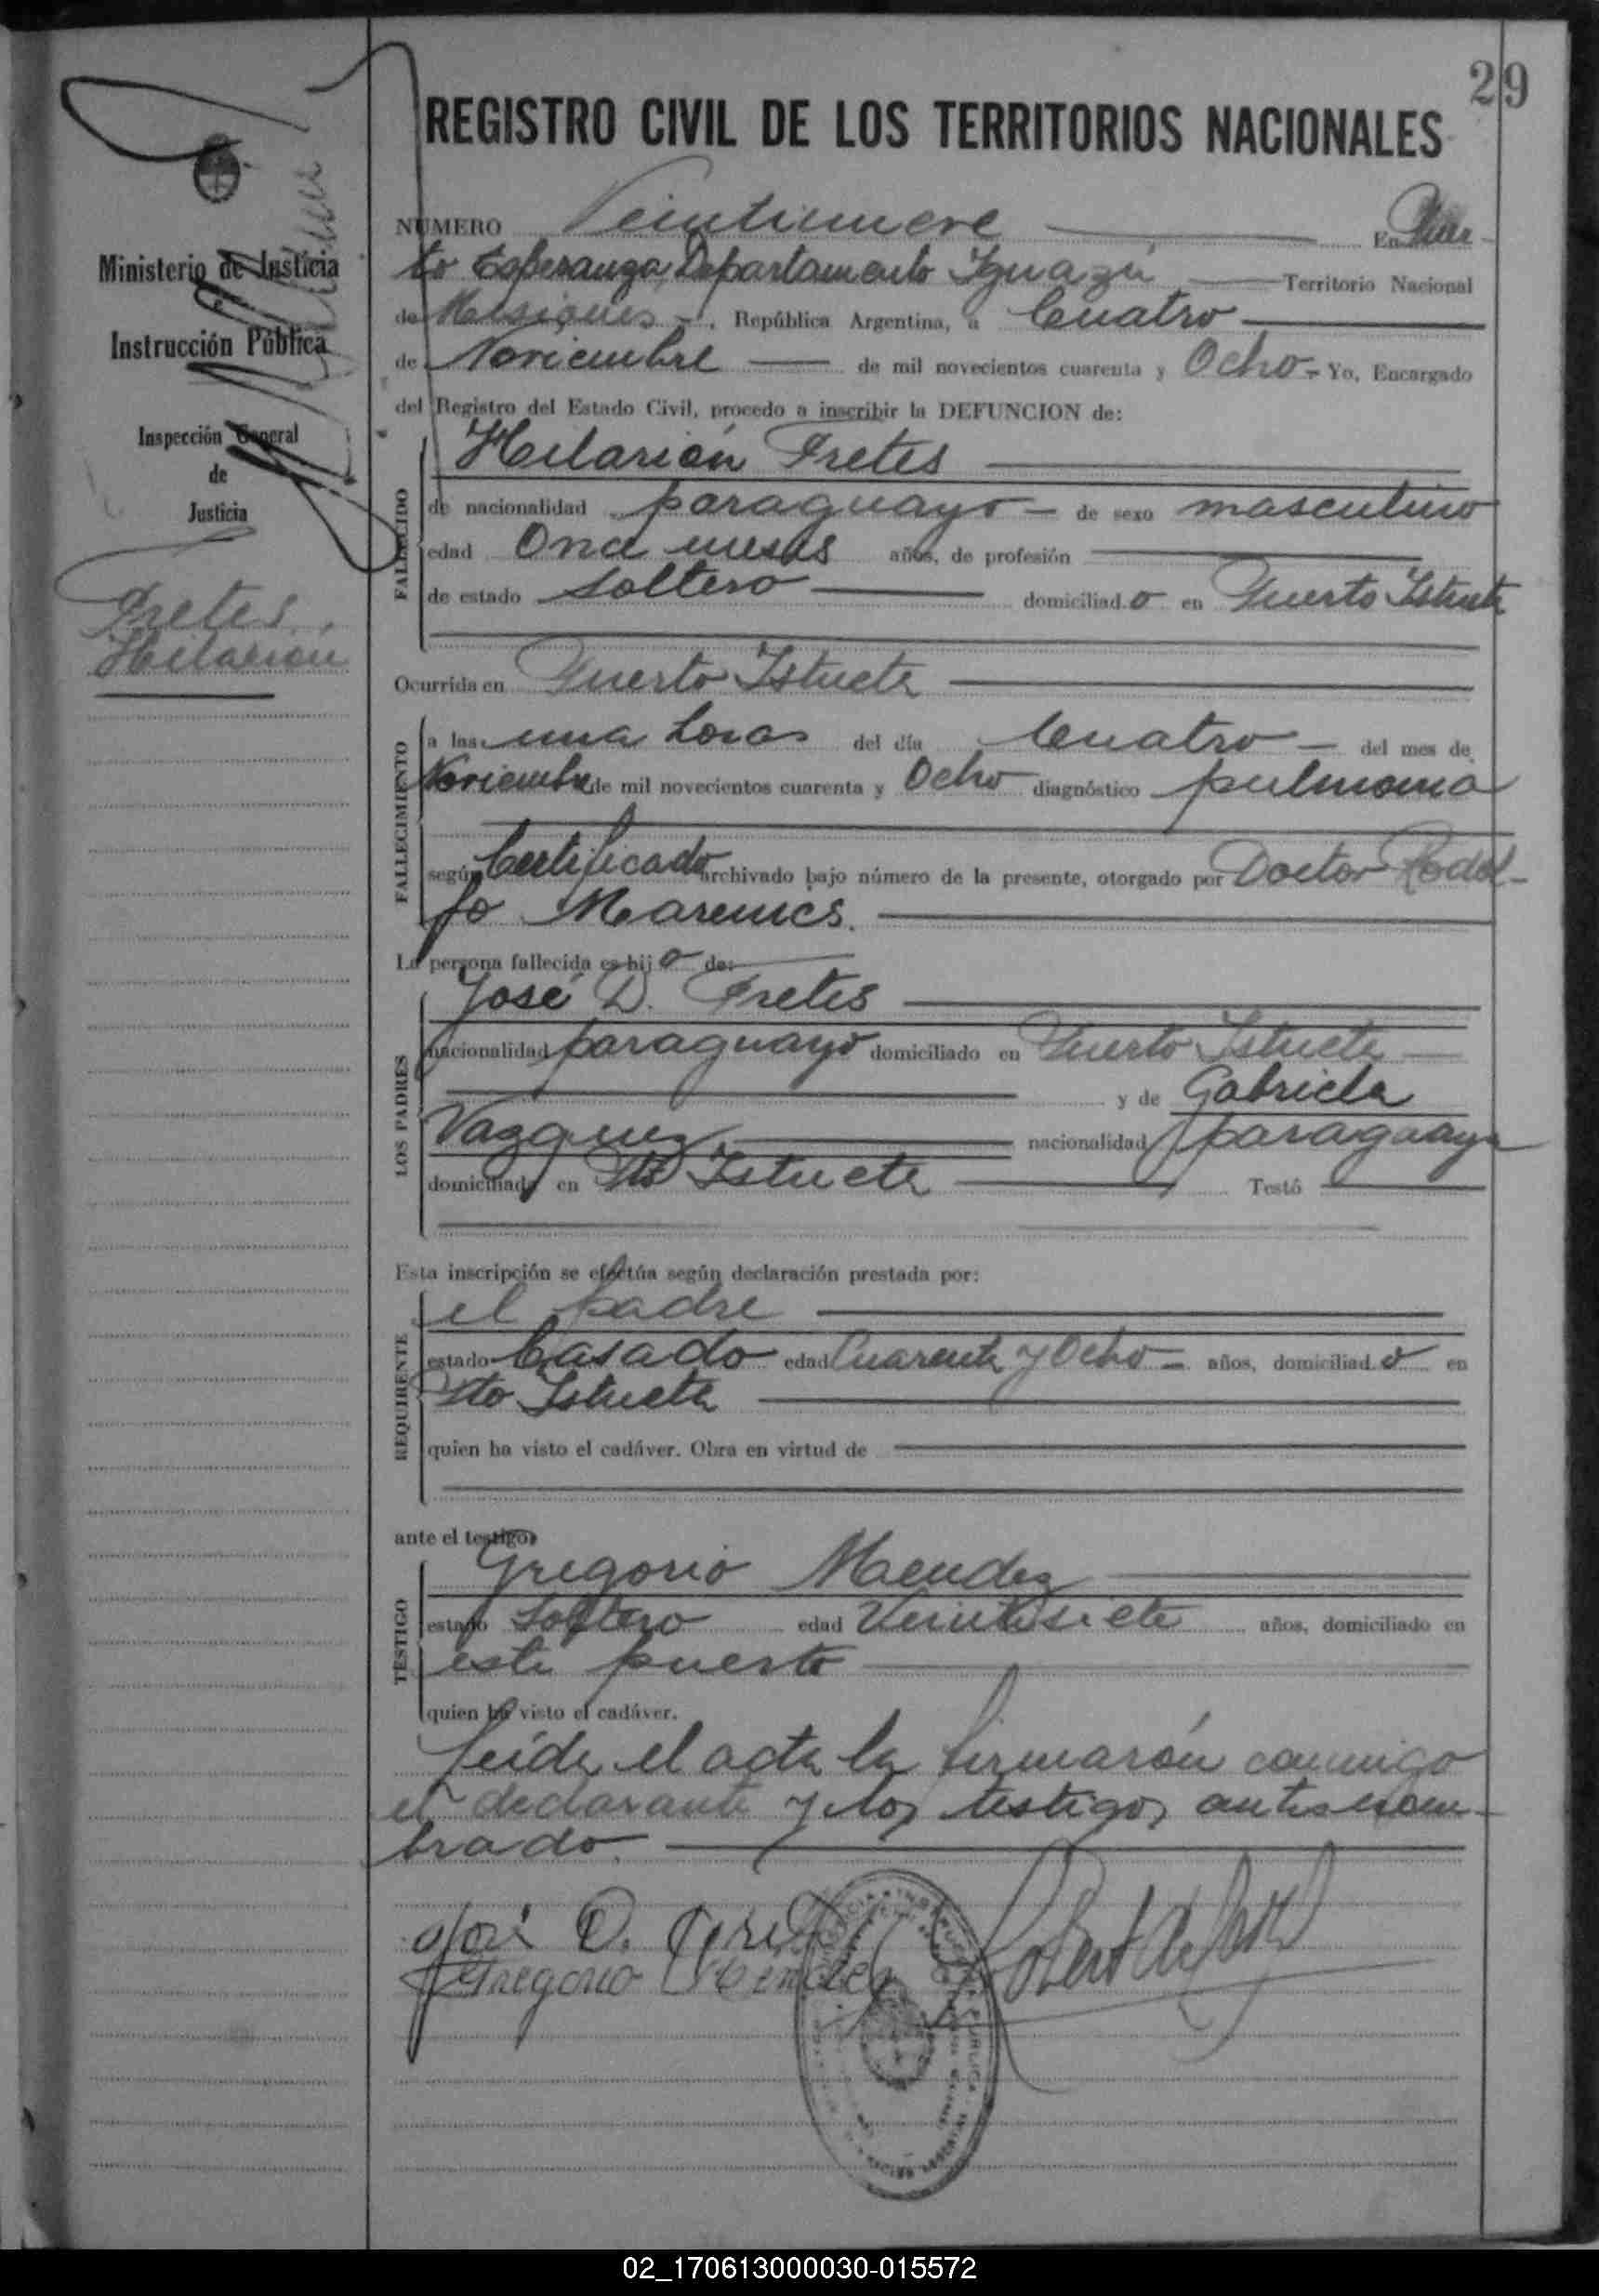 29
REGISTRO CIVIL DE LOS TERRITORIOS NACIONALES
Ministerio de Justicia
Instrucción Pública
Inspección General
de
Justicia
Fretes,
Hilarión
NUMERO Veintinueve En Puer-
to Esperanza, Departamento Iguazú Territorio Nacional
de Misiones, República Argentina, a Cuatro
de Noviembre de mil novecientos cuarenta y Ocho- Yo, Encargado
del Registro del Estado Civil, procedo a inscribir la DEFUNCION de:
FALLECIDO
Hilarión Fretes
de nacionalidad paraguayo - de sexo masculino
edad Once meses años, de profesión
de estado soltero domiciliado en Puerto Istueta
Ocurrida en Puerto Istueta
FALLECIMIENTO
a las una horas del día Cuatro - del mes de
Noviembre de mil novecientos cuarenta y Ocho diagnóstico pulmonia
según Certificado archivado bajo número de la presente, otorgado por Doctor Rodol-
fo
La persona fallecida es hijo de:
LOS PADRES
José D. Fretes
nacionalidad paraguayo domiciliado en Puerto Istueta
y de Gabriela
Vazquez, nacionalidad paraguaya
domiciliada en Pto Istueta Testó
Esta inscripción se efectúa según declaración prestada por:
REQUIRENTE
el padre
estado Casado edad Cuarenta y Ocho - años, domiciliado en
Pto Istueta
quien ha visto el cadáver. Obra en virtud de
ante el testigo
TESTIGO
Gregorio Mendez
estado Soltero edad Veintisiete años, domiciliado en
este puerto
quien ha visto el cadáver.
Leída el acta la firmarón conmigo
el declarante y los testigos antesnom-
brado.
José D. Fretes
Gregorio Mendez
02_170613000030-015572